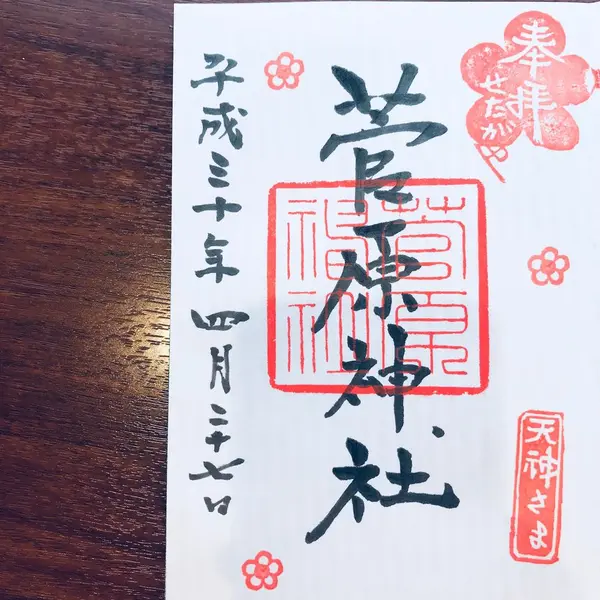 奉拝
せたがや
天神さま
菅原神社
菅原
神社
平成三十年四月二十七日